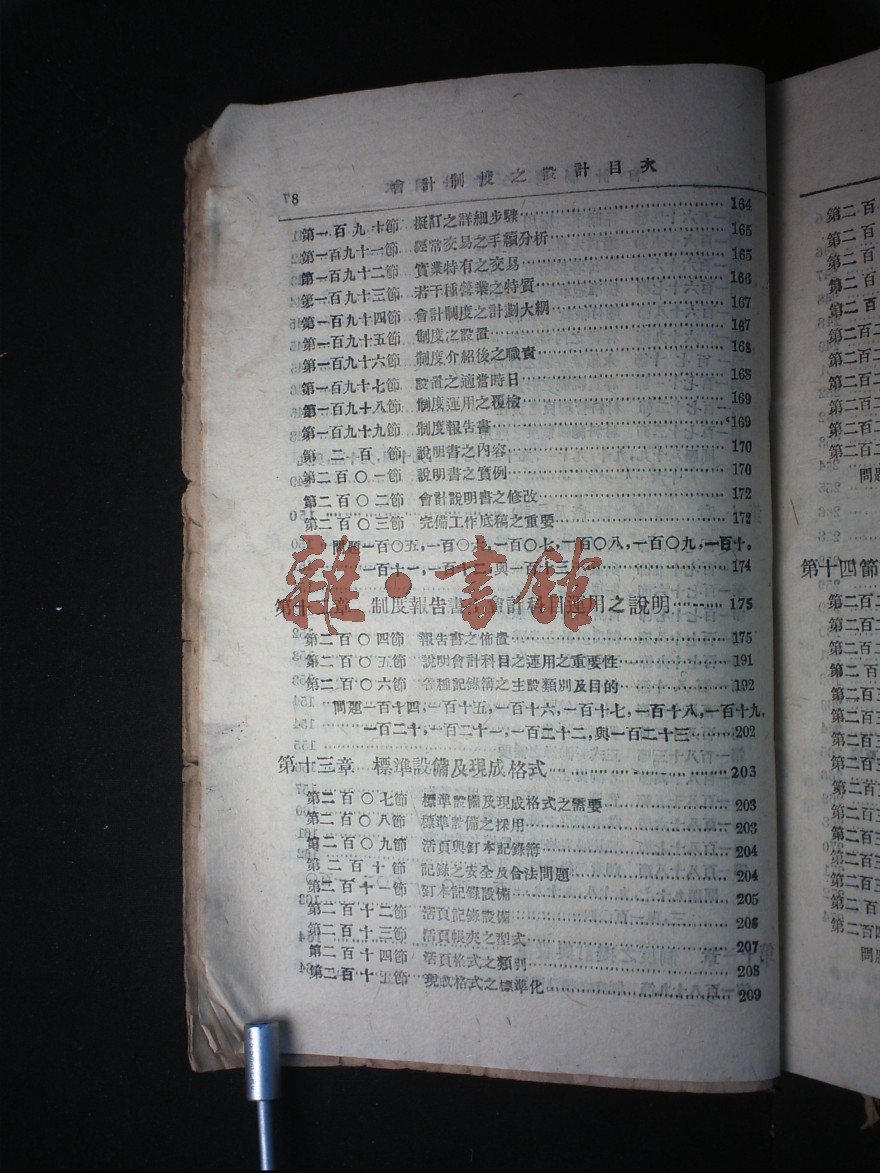 8 會計制度之設計目次
第一百九十節 擬訂之詳細步驟 164
第一百九十一節 經常交易之手續分析 165
第一百九十二節 實業特有之交易 165
第一百九十三節 若干種營業之特質 166
第一百九十四節 會計制度之計劃大綱 167
第一百九十五節 制度之設置 167
第一百九十六節 制度介紹後之職責 168
第一百九十七節 設置之適當時日 168
第一百九十八節 制度運用之覆檢 169
第一百九十九節 制度報告書 169
第二百節 說明書之內容 170
第二百〇一節 說明書之實例 170
第二百〇二節 會計說明書之修改 172
第二百〇三節 完備工作底稿之重要 172
問題一百〇五,一百〇六,一百〇七,一百〇八,一百〇九,一百十,
一百十一,一百十二,與一百十三 174
雜·書館
第十二章 制度報告書 會計科目運用之說明 175
第二百〇四節 報告書之佈置 175
第二百〇五節 說明會計科目之運用之重要性 191
第二百〇六節 各種記錄簿之主設類別及目的 192
問題一百十四,一百十五,一百十六,一百十七,一百十八,一百十九,
一百二十,一百二十一,一百二十二,與一百二十三 202
第十三章 標準設備及現成格式 203
第二百〇七節 標準設備及現成格式之需要 203
第二百〇八節 標準設備之採用 203
第二百〇九節 活頁與釘本記錄簿 204
第二百十節 記錄之安全及合法問題 204
第二百十一節 釘本記錄設備 205
第二百十二節 活頁記錄設備 206
第二百十三節 活頁帳夾之型式 207
第二百十四節 活頁格式之類別 208
第二百十五節 現成格式之標準化 209
第二百
第二百
第二百
第二百
第二百
第二百二
第二百二
第二百二
第二百二
第二百二
第二百二
問題
第十四節
第二百二
第二百二
第二百二
第二百
第二百三
第二百三
第二百三
第二百三
第二百三
第二百三
第二百三
第二百三
第二百三
第二百四
問題